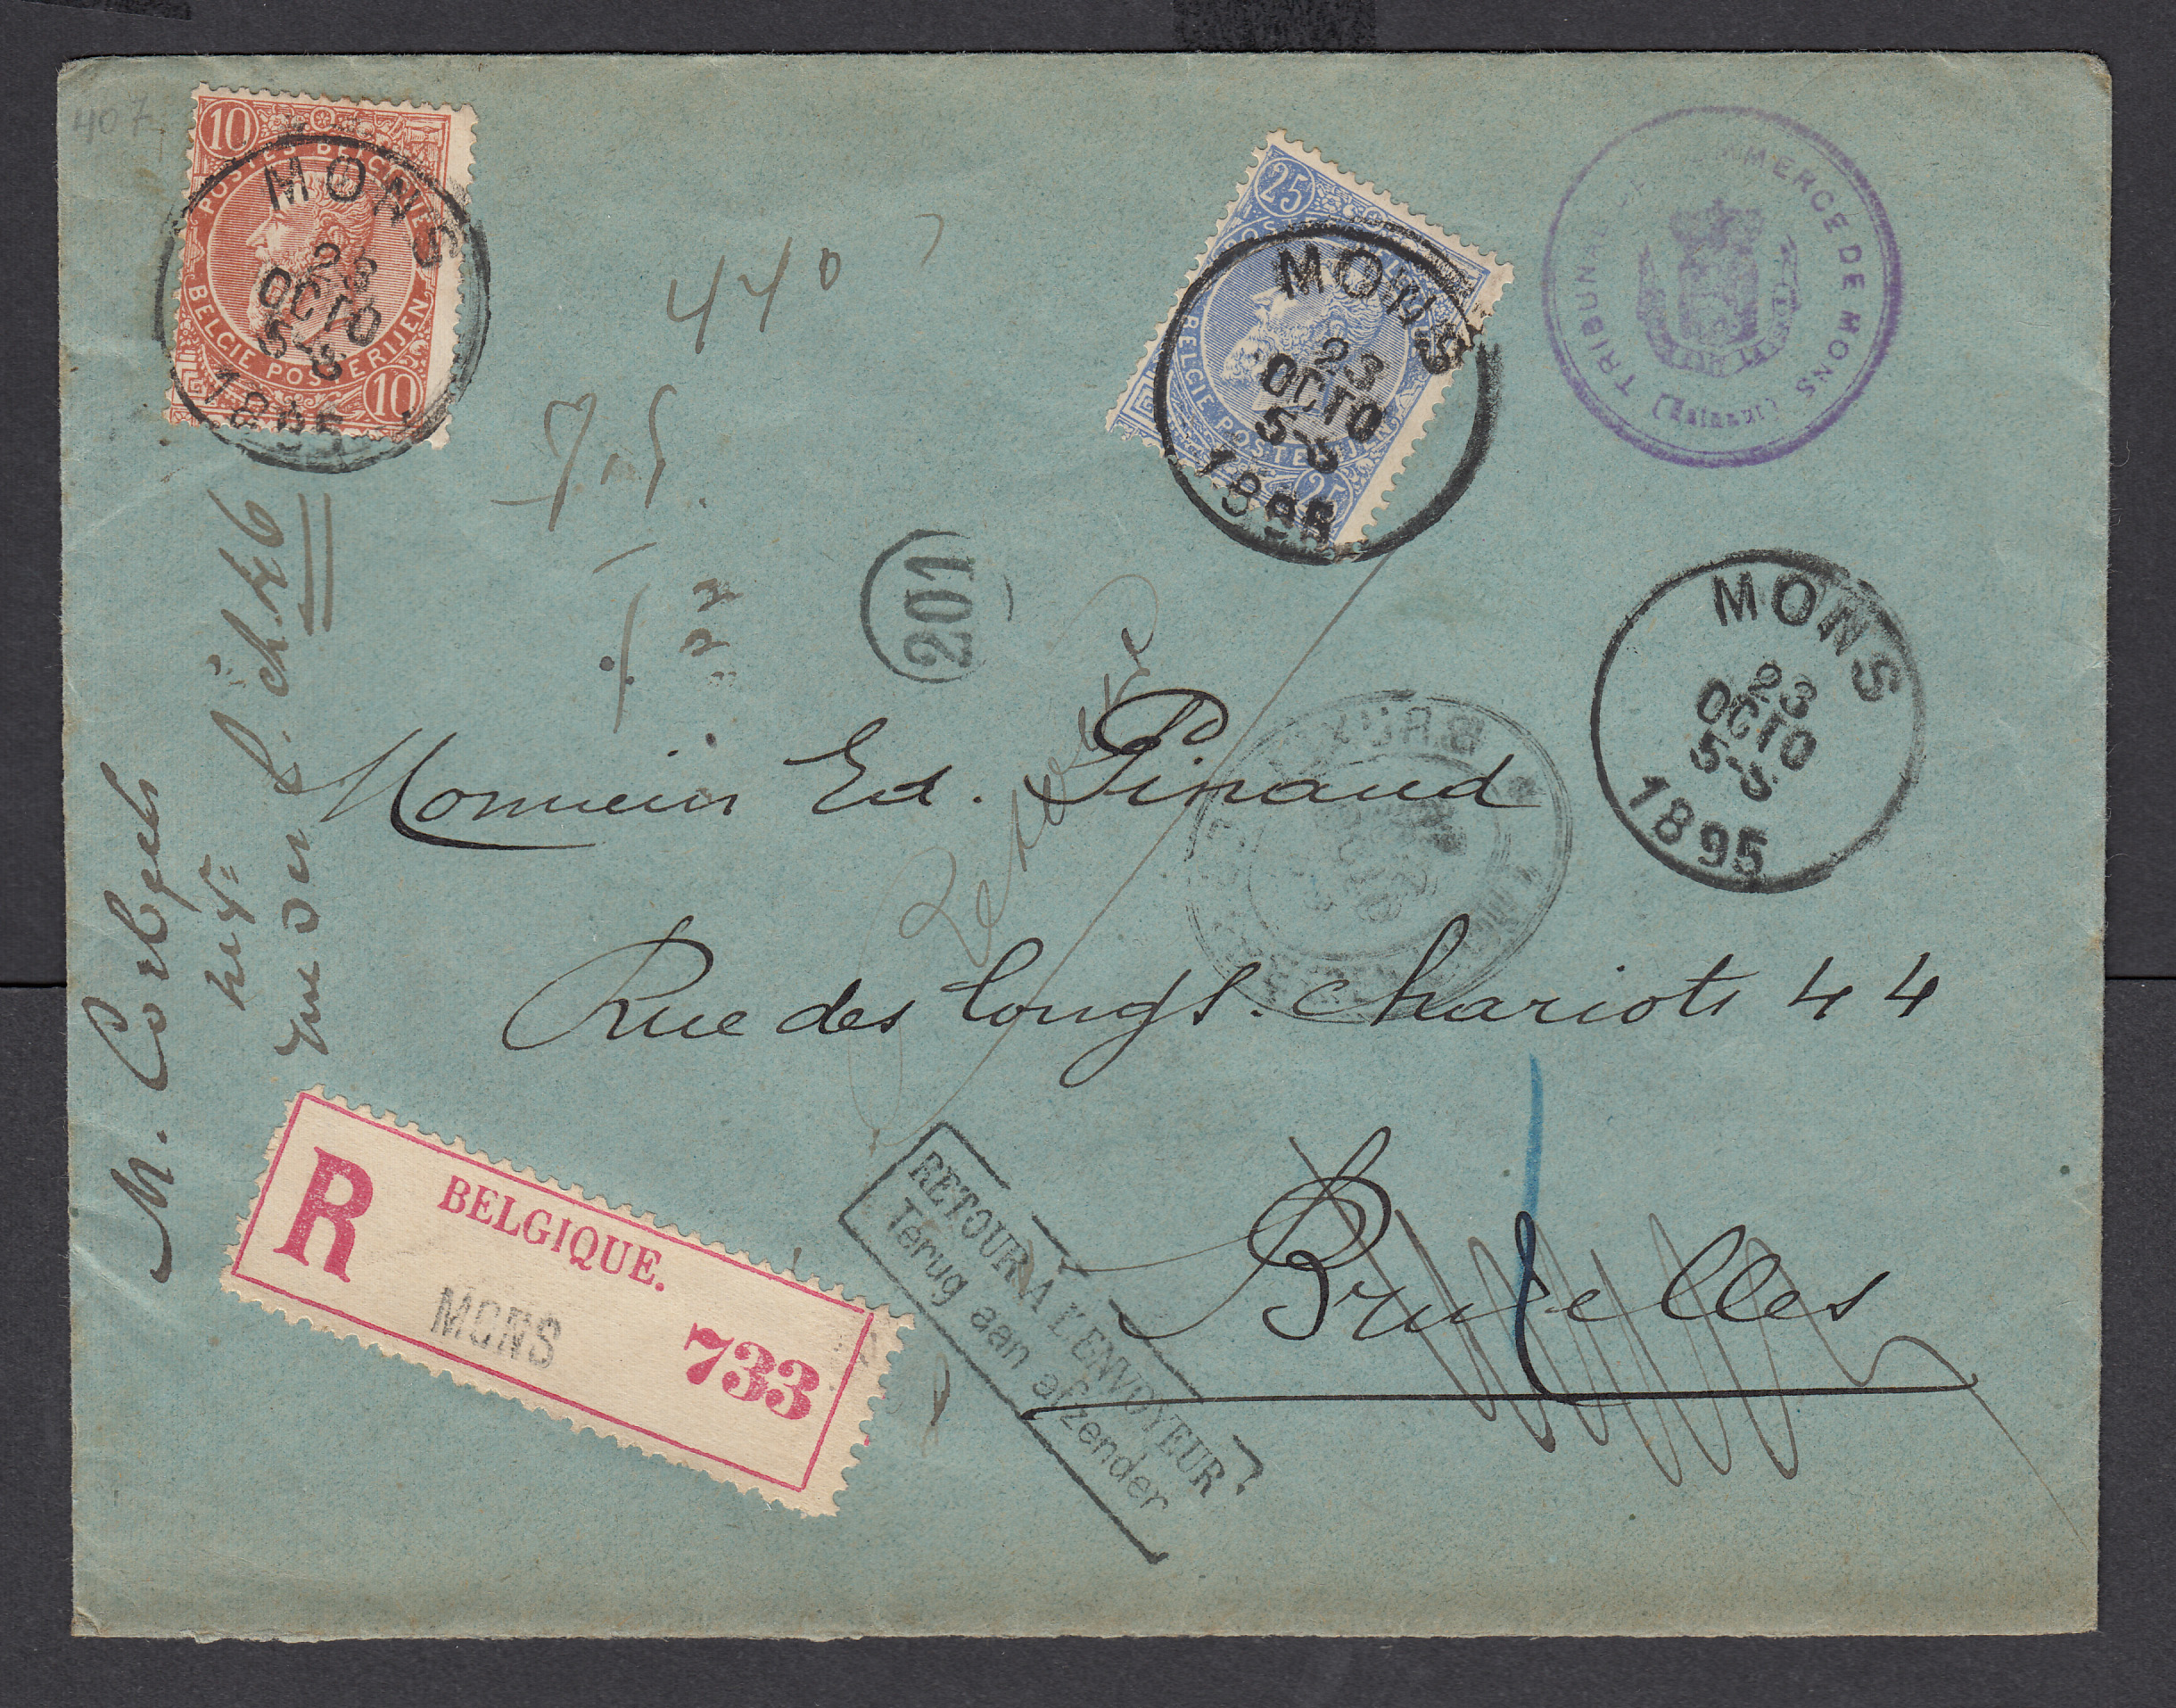 407
10
POSTES BELGIQUES
BELGIE POSTERIJEN
10
MONS
23
OCTO
5-S
1895
25
BELGIE POSTERIJEN
25
MONS
23
OCTO
5-S
1895
TRIBUNAL DE COMMERCE DE MONS
(Hainaut)
440
201
MONS
23
OCTO
5-S
1895
Monsieur Ed. Pinaud
Rue des longs. chariots 44
Bruxelles
R
BELGIQUE.
MONS
733
RETOUR A L'ENVOYEUR
Terug aan afzender